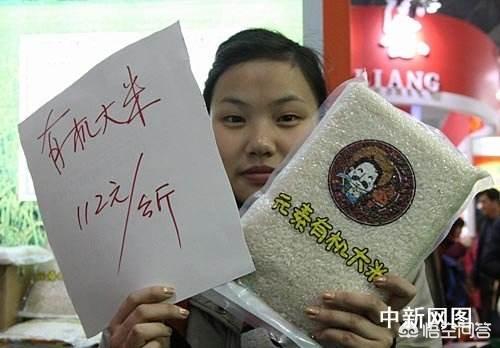 JILIANG
有机大米
112元/斤
元素有机大米
中新网图
悟空问答